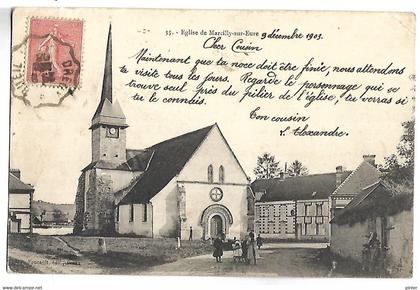 35. - Eglise de Marcilly-sur-Eure
9 décembre 1903.
Cher Cousin
Maintenant que ta noce doit être finie, nous attendons
ta visite tous les jours. Regarde le personnage qui se
trouve seul près du pilier de l'église, tu verras si
tu le connais.
Ton cousin
Alexandre.